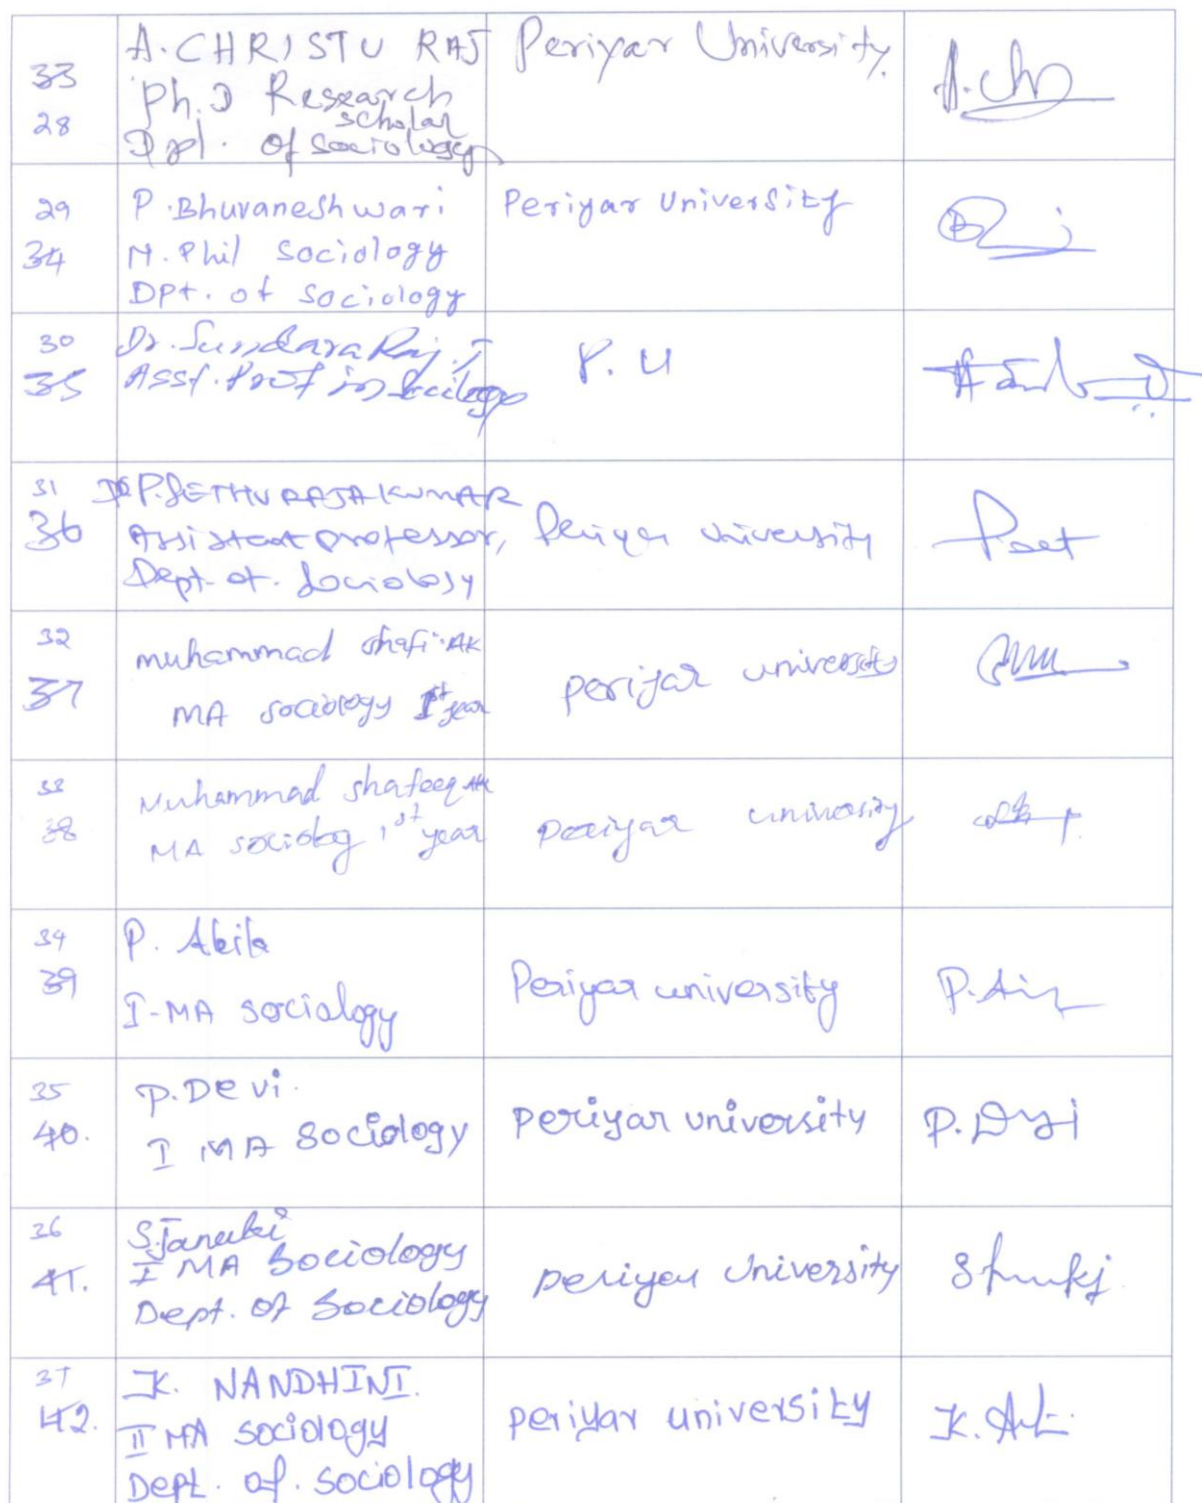 33
28
A. CHRISTU RAJ
Ph.D Research
scholar
Dpt. of Sociology
Periyar University.
A.Ch
29
34
P. Bhuvaneshwari
M. Phil Sociology
DPt. of Sociology
Periyar University
30
35
Dr. Sundara Raj. T
Asst. Prof in Sociology
P. U
31
36
Dr P. SETHU RAJA KUMAR
Assistant professor,
Dept. of. Sociology
Periyar University
32
37
muhammad shafi. AK
MA sociology 1st year
periyar university
33
38
Muhammad shafeeq AK
MA sociolog 1st year
periyar university
34
39
P. Akila
I-MA sociology
Periyar university
35
40.
P. Devi.
I MA Sociology
Periyar university
P. Devi
36
41.
S. Janaki
I MA Sociology
Dept. of Sociology
periyar University
37
42.
K. NANDHINI.
II MA sociology
Dept. of. sociology
periyar university